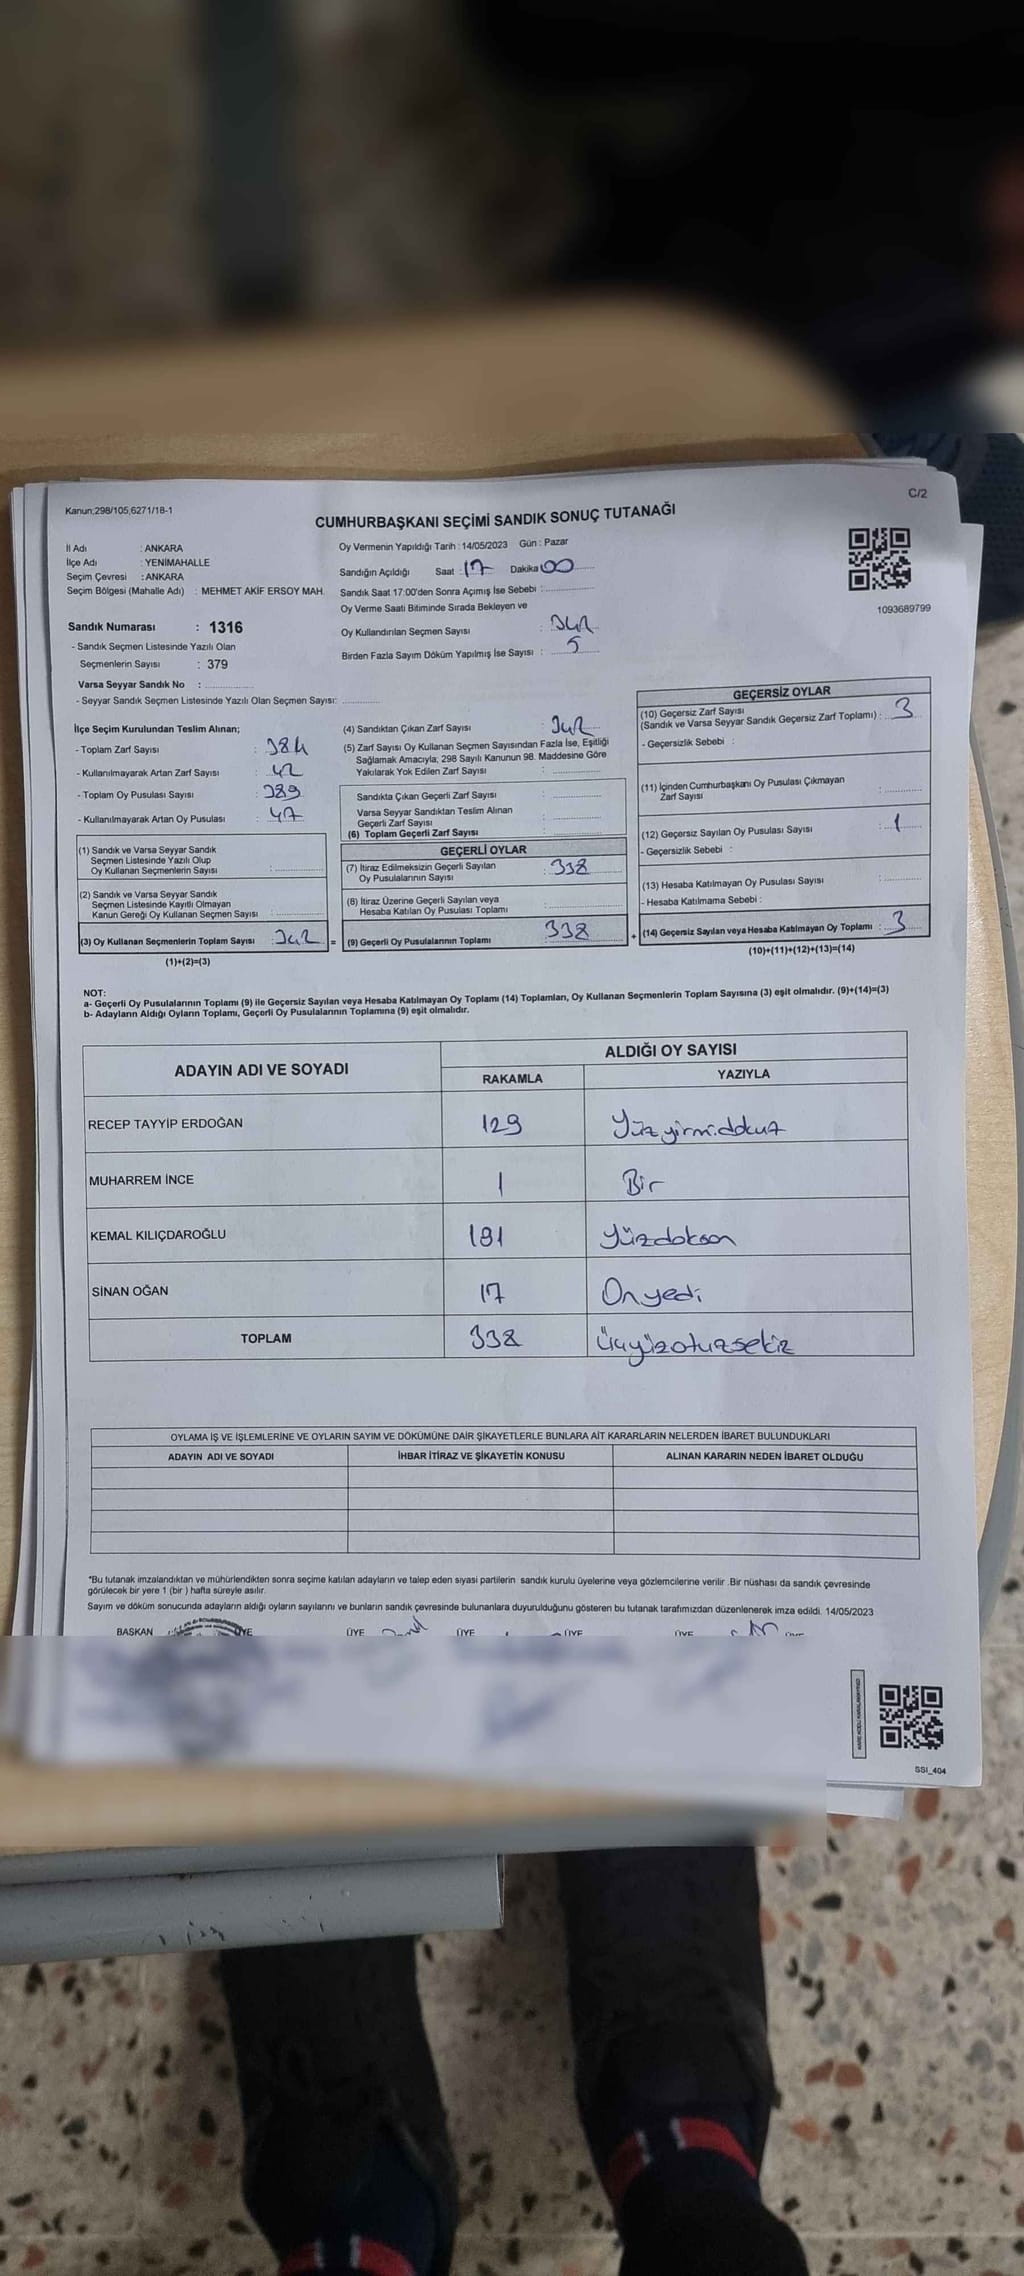 Kanun;298/105,6271/18-1
C/2
CUMHURBAŞKANI SEÇİMİ SANDIK SONUÇ TUTANAĞI
İl Adı : ANKARA
İlçe Adı : YENİMAHALLE
Seçim Çevresi : ANKARA
Seçim Bölgesi (Mahalle Adı) : MEHMET AKİF ERSOY MAH.
Oy Vermenin Yapıldığı Tarih : 14/05/2023 Gün : Pazar
Sandığın Açıldığı Saat : 17 Dakika 00
Sandık Saat 17:00'den Sonra Açımış İse Sebebi :
Oy Verme Saati Bitiminde Sırada Bekleyen ve
Oy Kullandırılan Seçmen Sayısı : 342
Birden Fazla Sayım Döküm Yapılmış İse Sayısı : 5
1093689799
Sandık Numarası : 1316
- Sandık Seçmen Listesinde Yazılı Olan
Seçmenlerin Sayısı : 379
Varsa Seyyar Sandık No :
- Seyyar Sandık Seçmen Listesinde Yazılı Olan Seçmen Sayısı:
İlçe Seçim Kurulundan Teslim Alınan;
- Toplam Zarf Sayısı : 384
- Kullanılmayarak Artan Zarf Sayısı : 42
- Toplam Oy Pusulası Sayısı : 389
- Kullanılmayarak Artan Oy Pusulası : 47
(1) Sandık ve Varsa Seyyar Sandık
Seçmen Listesinde Yazılı Olup
Oy Kullanan Seçmenlerin Sayısı :
(2) Sandık ve Varsa Seyyar Sandık
Seçmen Listesinde Kayıtlı Olmayan
Kanun Gereği Oy Kullanan Seçmen Sayısı :
(3) Oy Kullanan Seçmenlerin Toplam Sayısı : 342 =
(1)+(2)=(3)
(4) Sandıktan Çıkan Zarf Sayısı : 342
(5) Zarf Sayısı Oy Kullanan Seçmen Sayısından Fazla İse, Eşitliği
Sağlamak Amacıyla, 298 Sayılı Kanunun 98. Maddesine Göre
Yakılarak Yok Edilen Zarf Sayısı :
Sandıkta Çıkan Geçerli Zarf Sayısı :
Varsa Seyyar Sandıktan Teslim Alınan
Geçerli Zarf Sayısı :
(6) Toplam Geçerli Zarf Sayısı :
GEÇERLİ OYLAR
(7) İtiraz Edilmeksizin Geçerli Sayılan
Oy Pusulalarının Sayısı : 338
(8) İtiraz Üzerine Geçerli Sayılan veya
Hesaba Katılan Oy Pusulası Toplamı :
(9) Geçerli Oy Pusulalarının Toplamı 338 +
GEÇERSİZ OYLAR
(10) Geçersiz Zarf Sayısı
(Sandık ve Varsa Seyyar Sandık Geçersiz Zarf Toplamı) : 3
- Geçersizlik Sebebi :
(11) İçinden Cumhurbaşkanı Oy Pusulası Çıkmayan
Zarf Sayısı :
(12) Geçersiz Sayılan Oy Pusulası Sayısı : 1
- Geçersizlik Sebebi :
(13) Hesaba Katılmayan Oy Pusulası Sayısı :
- Hesaba Katılmama Sebebi :
(14) Geçersiz Sayılan veya Hesaba Katılmayan Oy Toplamı : 3
(10)+(11)+(12)+(13)=(14)
NOT:
a- Geçerli Oy Pusulalarının Toplamı (9) ile Geçersiz Sayılan veya Hesaba Katılmayan Oy Toplamı (14) Toplamları, Oy Kullanan Seçmenlerin Toplam Sayısına (3) eşit olmalıdır. (9)+(14)=(3)
b- Adayların Aldığı Oyların Toplamı, Geçerli Oy Pusulalarının Toplamına (9) eşit olmalıdır.
ADAYIN ADI VE SOYADI
ALDIĞI OY SAYISI
RAKAMLA YAZIYLA
RECEP TAYYİP ERDOĞAN 129 Yüzyirmidokuz
MUHARREM İNCE 1 Bir
KEMAL KILIÇDAROĞLU 191 Yüzdoksan
SİNAN OĞAN 17 Onyedi
TOPLAM 338 Üçyüzotuzsekiz
OYLAMA İŞ VE İŞLEMLERİNE VE OYLARIN SAYIM VE DÖKÜMÜNE DAİR ŞİKAYETLERLE BUNLARA AİT KARARLARIN NELERDEN İBARET BULUNDUKLARI
ADAYIN ADI VE SOYADI İHBAR İTİRAZ VE ŞİKAYETİN KONUSU ALINAN KARARIN NEDEN İBARET OLDUĞU
*Bu tutanak imzalandıktan ve mühürlendikten sonra seçime katılan adayların ve talep eden siyasi partilerin sandık kurulu üyelerine veya gözlemcilerine verilir .Bir nüshası da sandık çevresinde
görülecek bir yere 1 (bir ) hafta süreyle asılır.
Sayım ve döküm sonucunda adayların aldığı oyların sayılarını ve bunların sandık çevresinde bulunanlara duyurulduğunu gösteren bu tutanak tarafımızdan düzenlenerek imza edildi. 14/05/2023
BAŞKAN ÜYE ÜYE ÜYE ÜYE ÜYE
SSI_404